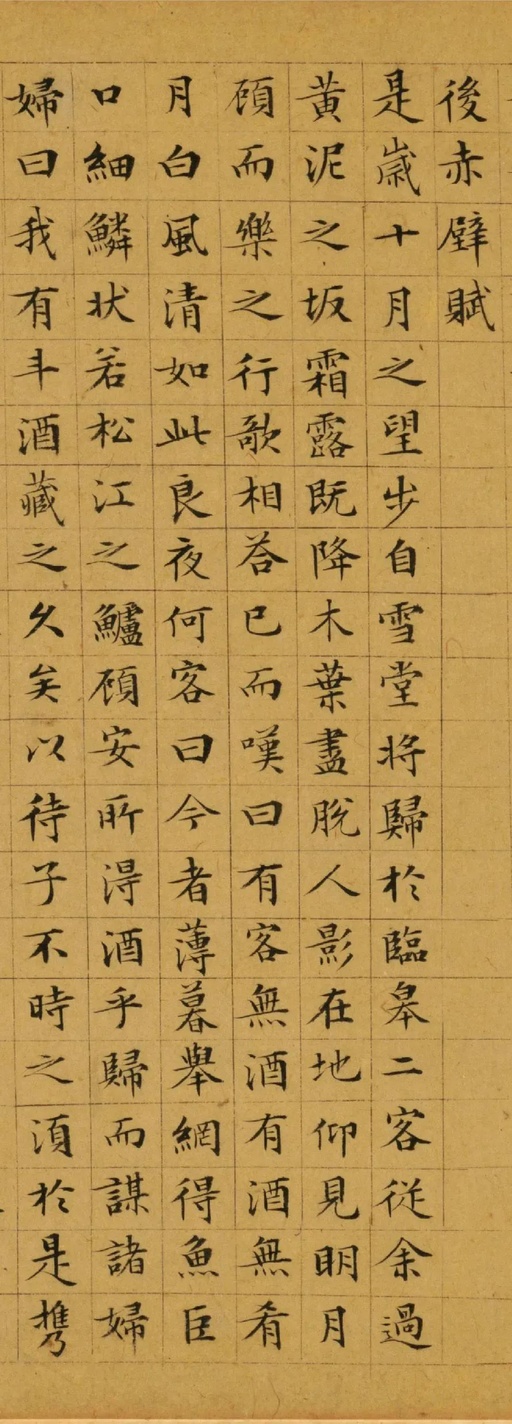 後赤壁賦
是歲十月之望步自雪堂將歸於臨皋二客從余過
黃泥之坂霜露既降木葉盡脫人影在地仰見明月
顧而樂之行歌相荅已而嘆曰有客無酒有酒無肴
月白風清如此良夜何客曰今者薄暮舉網得魚巨
口細鱗狀若松江之鱸顧安所得酒乎歸而謀諸婦
婦曰我有斗酒藏之久矣以待子不時之須於是攜